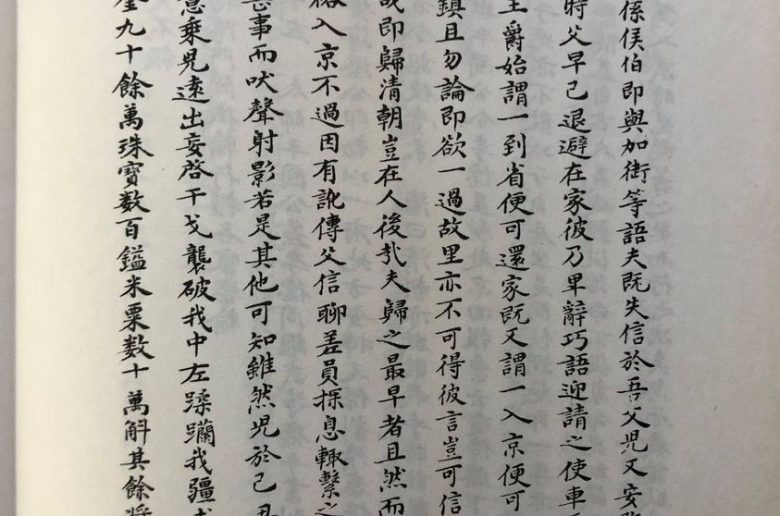 係侯伯即與加銜等語夫既失信於吾父兒又安敢
時父早已退避在家彼乃卑辭巧語迎請之使車
王爵始謂一到省便可還家既又謂一入京便可
鎮且勿論即欲一過故里亦不可得彼言豈可信
即歸清朝豈在人後哉夫歸之最早者且然而
裕入京不過因有訛傳父信聊差員探息輒繫之
事而吠聲射影若是其他可知雖然兒於己丑
意乘兒遠出妄啓干戈襲破我中左蹂躪我疆
金九十餘萬珠寶数百鎰米粟数十萬斛其餘將